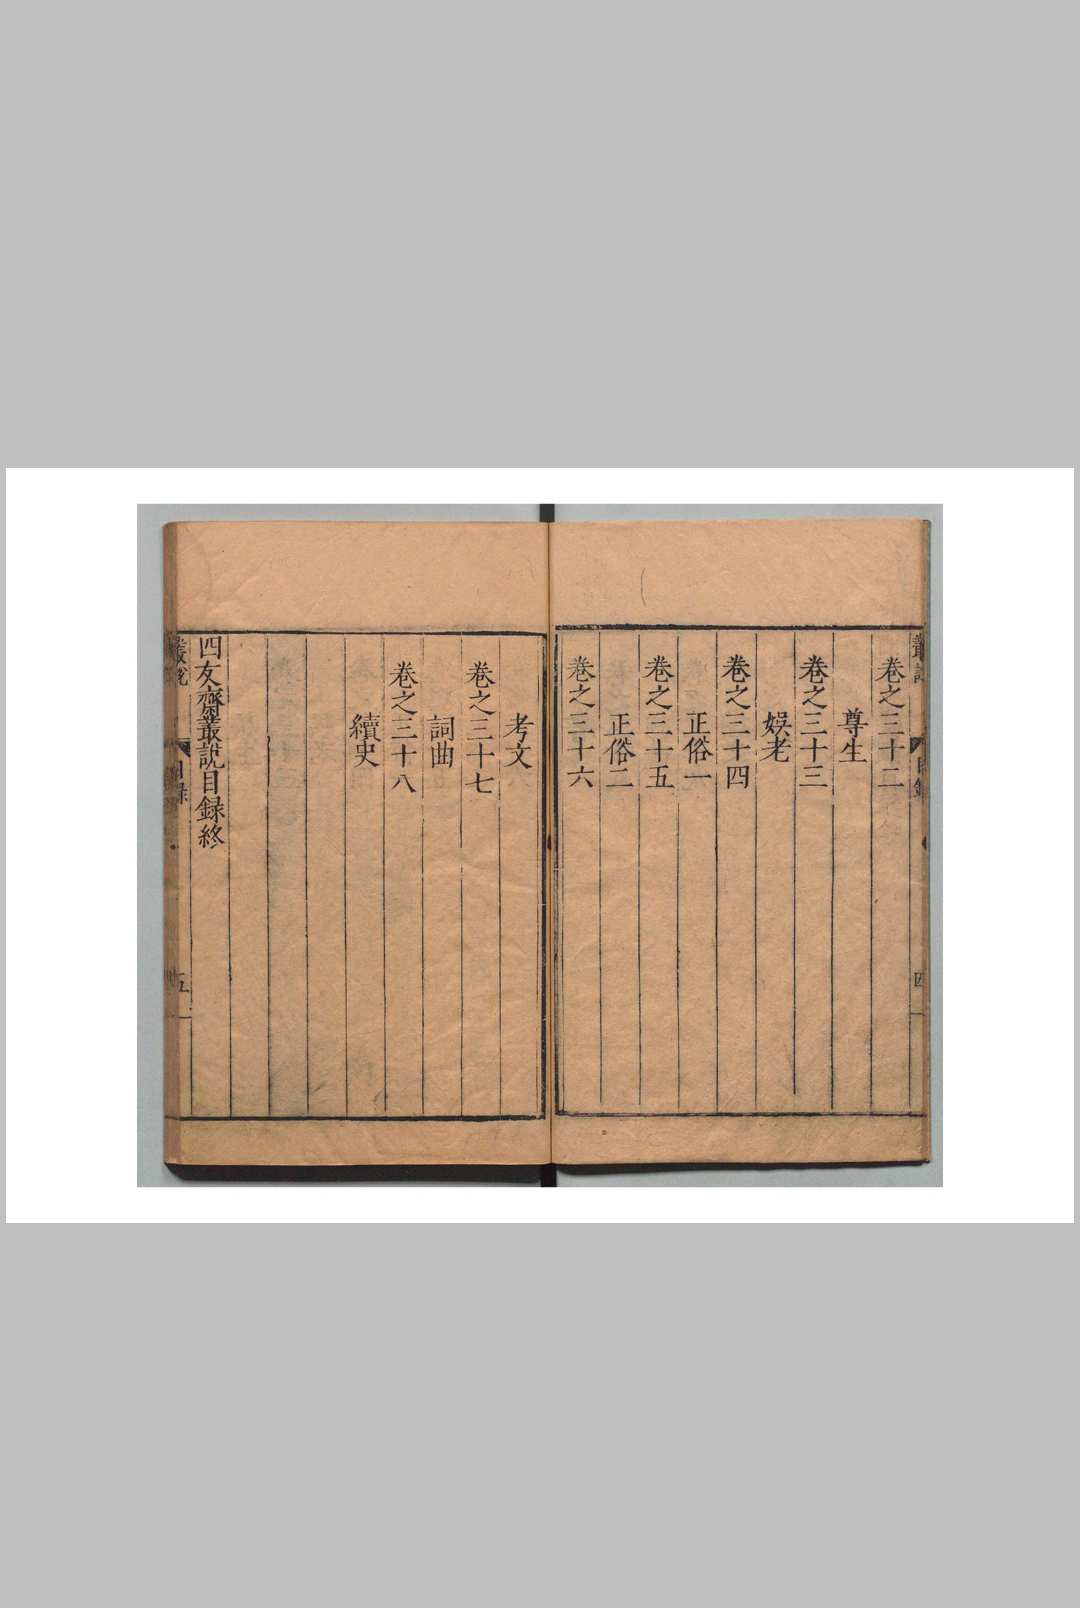 卷之三十二
尊生
卷之三十三
娛老
卷之三十四
正俗一
卷之三十五
正俗二
卷之三十六
考文
卷之三十七
詞曲
卷之三十八
續史
四友齋叢說目録終
叢說
目録
五